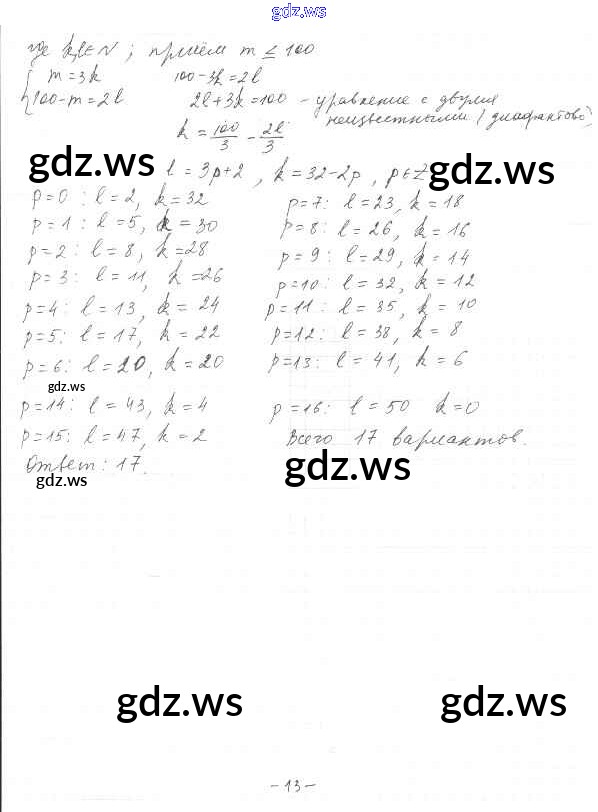 gdz.ws
где k,l∈N ; причём m ≤ 100
{ m = 3k 100-3k=2l
100-m = 2l 2l+3k=100 - уравнение с двумя
неизвестными (диофантово)
k = 100/3 - 2l/3
gdz.ws gdz.ws
l = 3p+2 , k = 32-2p , p∈Z
p=0 : l=2, k=32 p=7: l=23, k=18
p=1 : l=5, k=30 p=8: l=26, k=16
p=2 : l=8, k=28 p=9: l=29, k=14
p=3: l=11, k=26 p=10: l=32, k=12
p=4: l=13, k=24 p=11: l=35, k=10
p=5: l=17, k=22 p=12: l=38, k=8
p=6: l=20, k=20 p=13: l=41, k=6
gdz.ws
p=14: l=43, k=4 p=16: l=50 k=0
p=15: l=47, k=2 Всего 17 вариантов.
Ответ: 17. gdz.ws
gdz.ws
gdz.ws gdz.ws
-13-
gdz.ws